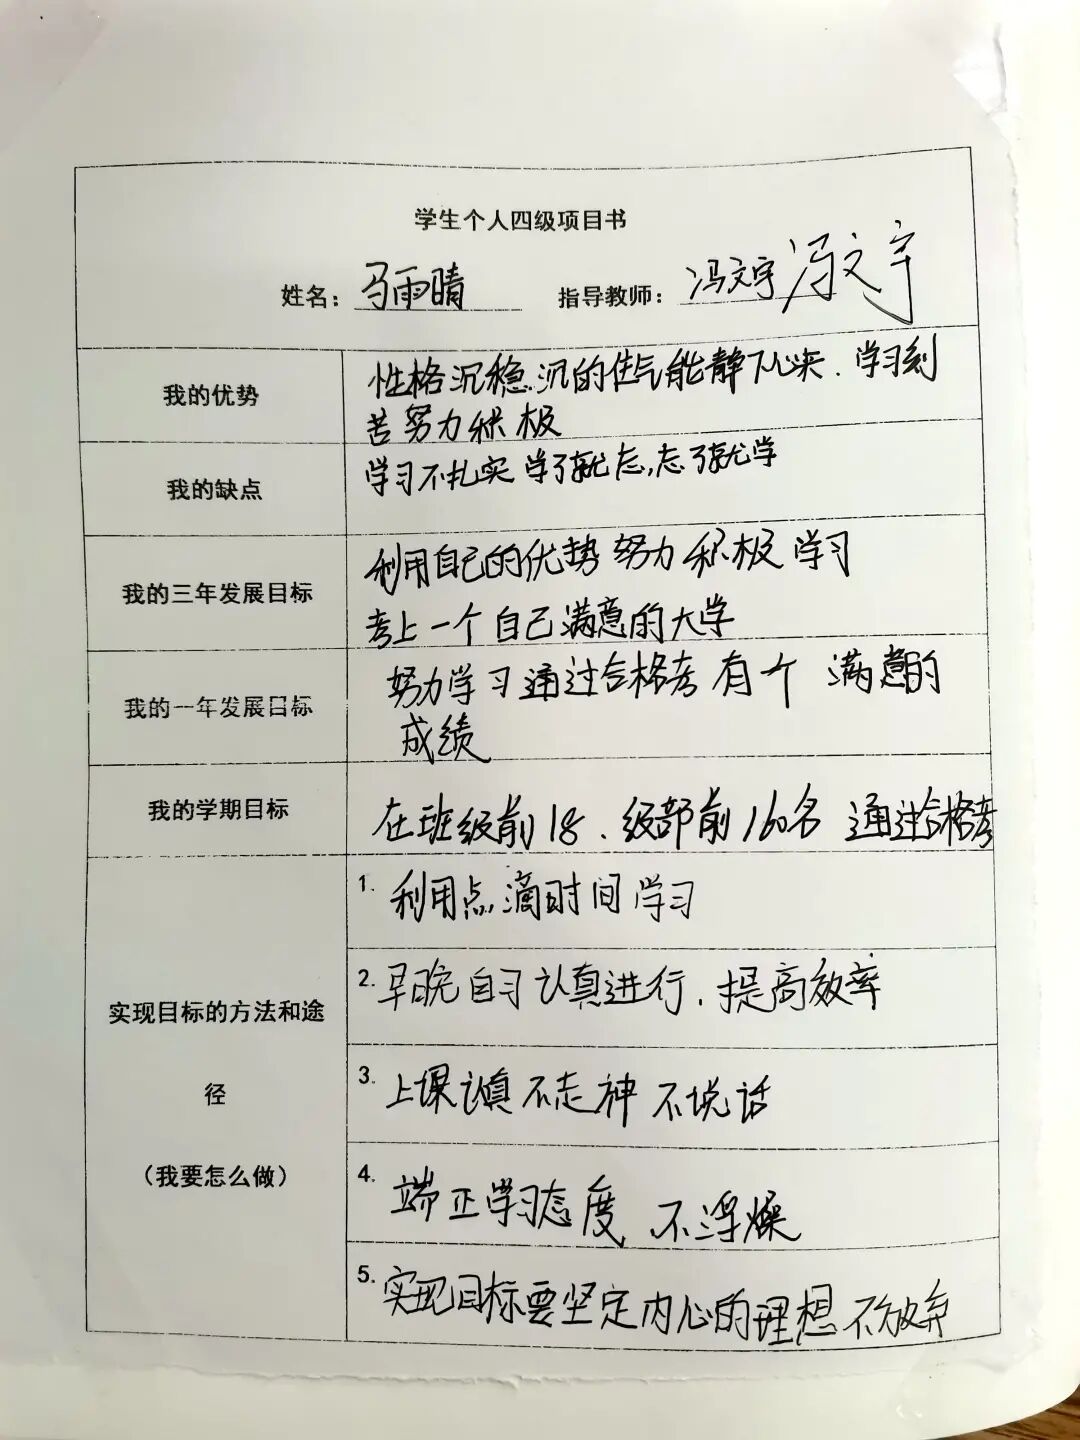 学生个人四级项目书
姓名：马雨晴 指导教师：冯文宇 冯文宇
我的优势
性格沉稳.沉的住气能静下心来.学习刻
苦努力积极
我的缺点
学习不扎实 学了就忘,忘了就学
我的三年发展目标
利用自己的优势努力积极学习
考上一个自己满意的大学
我的一年发展目标
努力学习通过合格考有个 满意的
成绩
我的学期目标
在班级前18、级部前160名 通过合格考
实现目标的方法和途
径
（我要怎么做）
1. 利用点滴时间学习
2. 早晚自习认真进行，提高效率
3. 上课认真不走神 不说话
4. 端正学习态度 不浮燥
5. 实现目标要坚定内心的理想不放弃